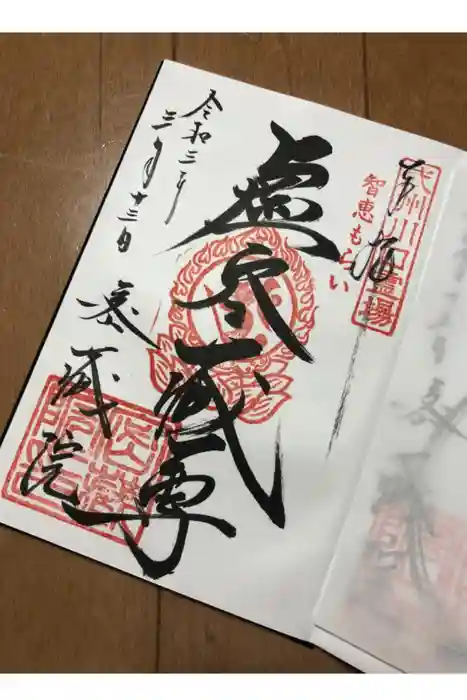 奉拝
武州川口霊場
智恵もらい
虚空蔵尊
令和三年
三月十三日
宝蔵院